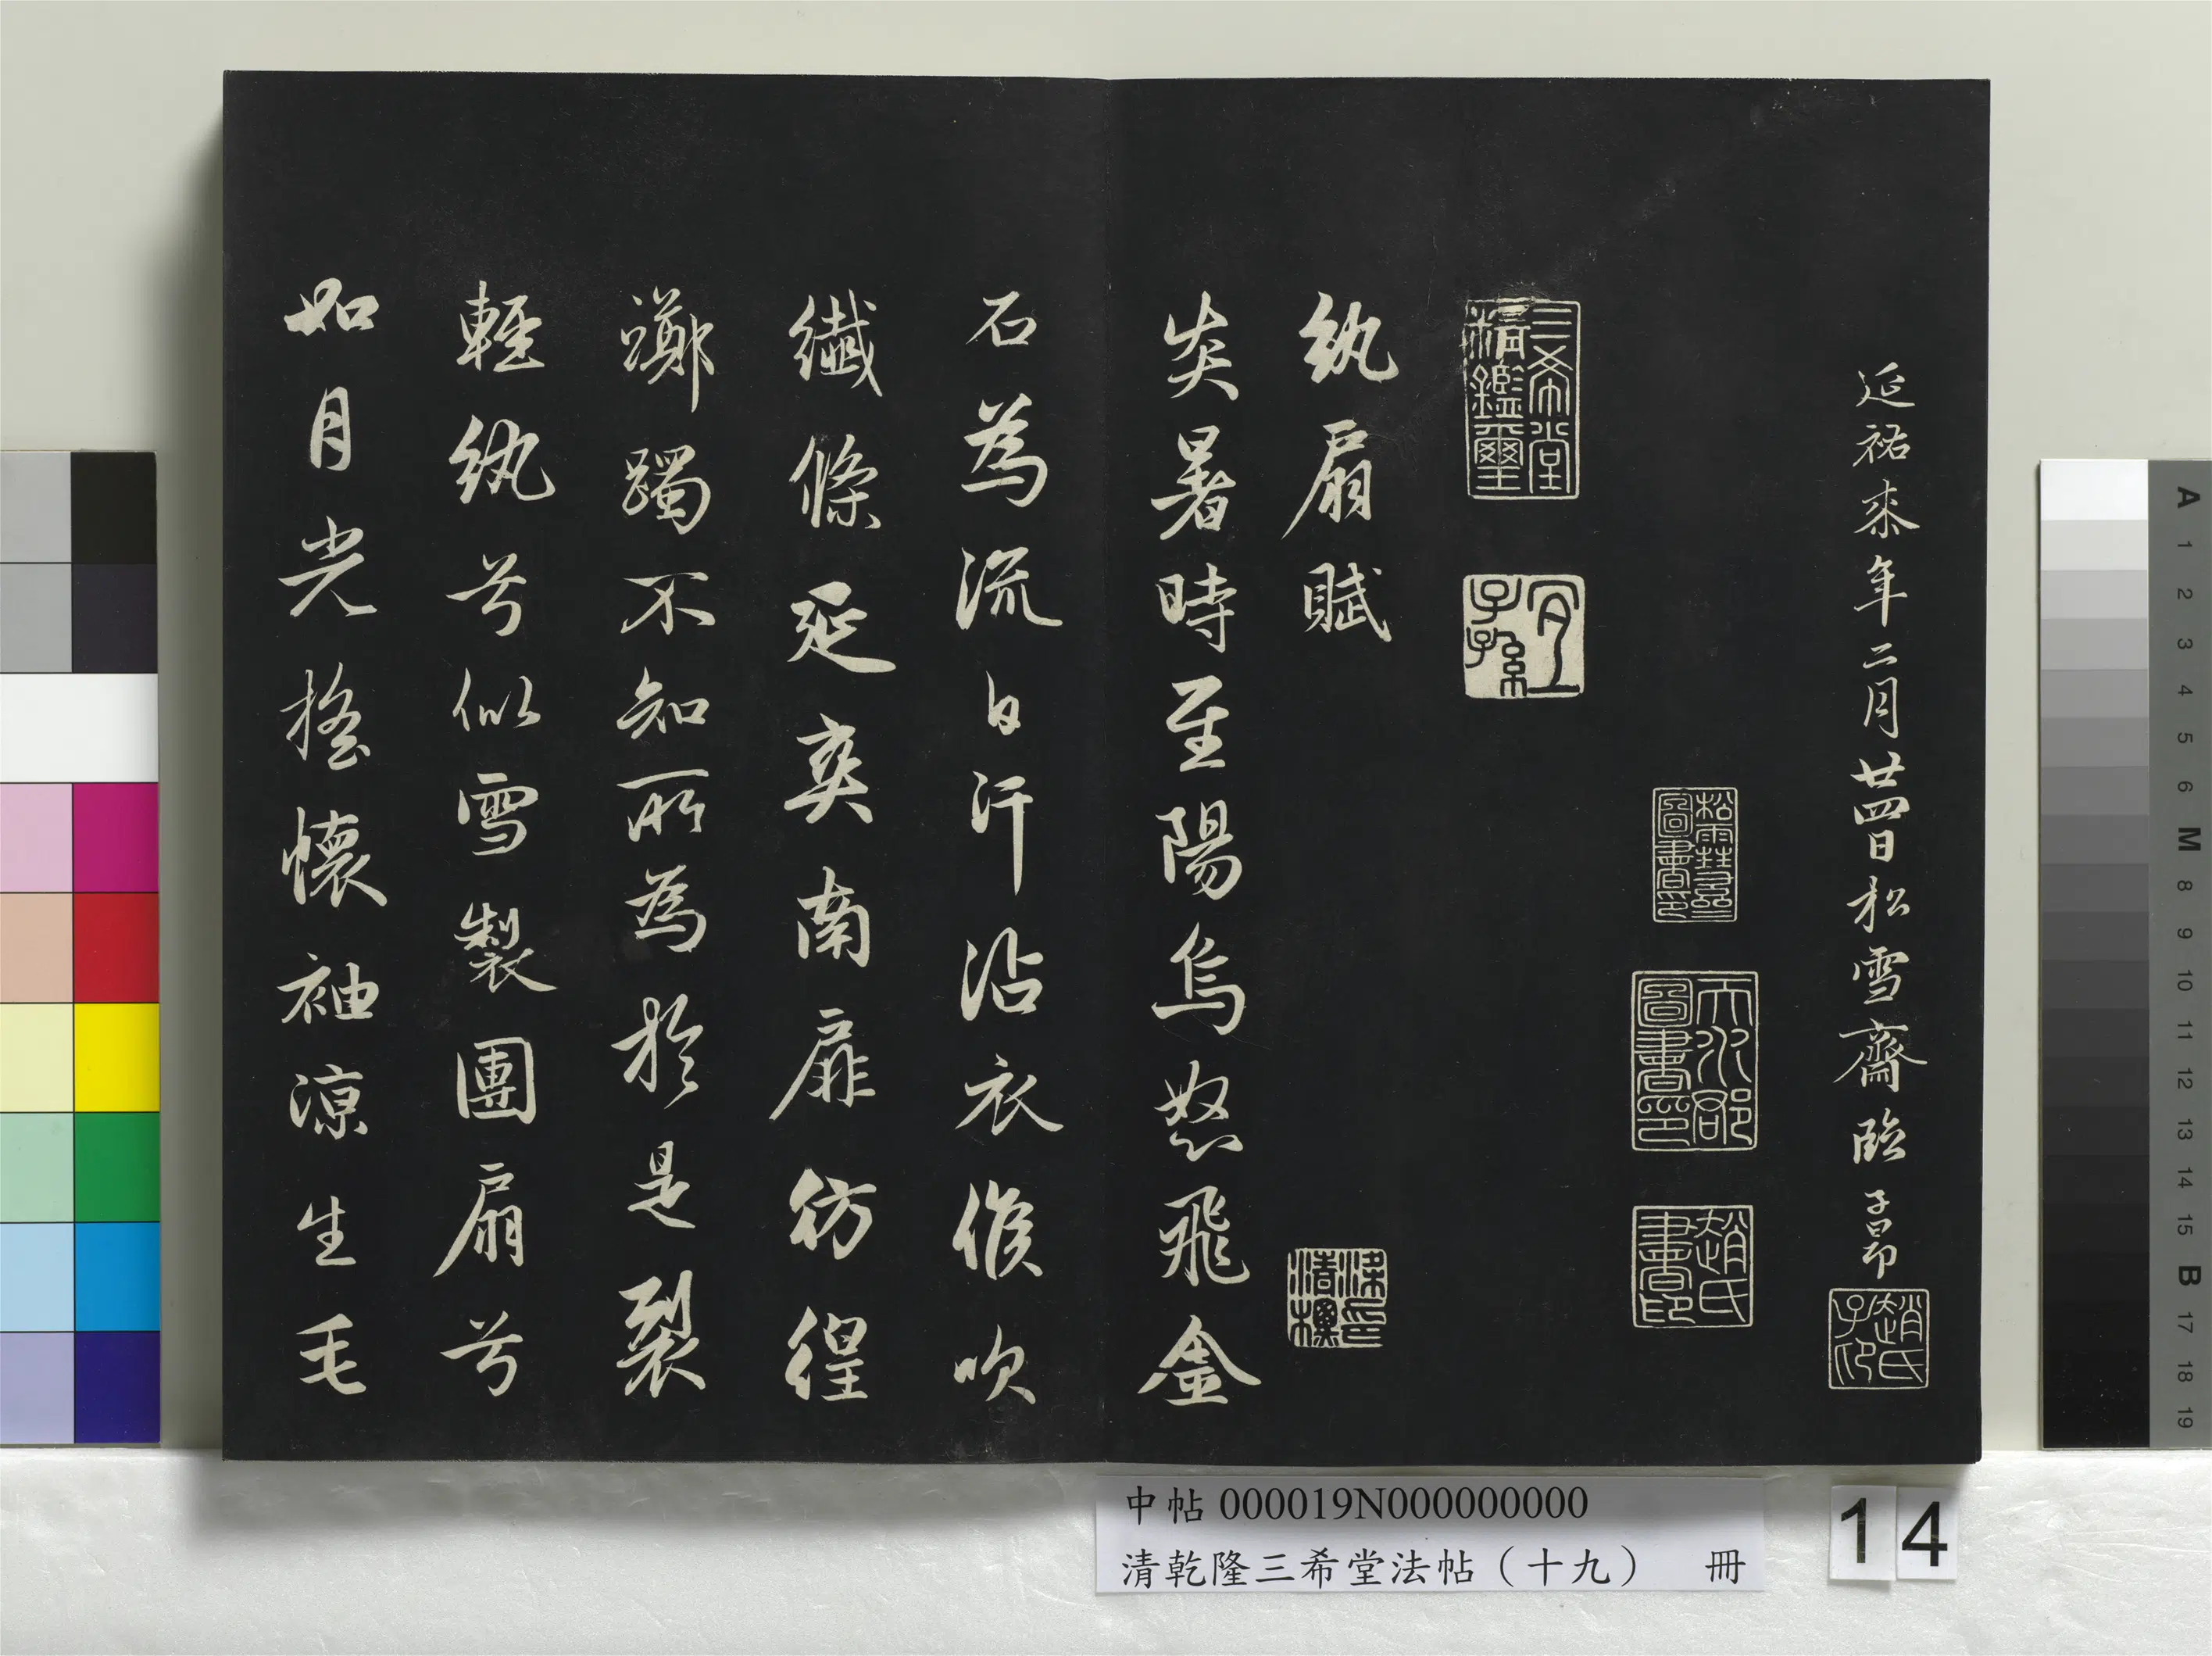 延祐柒年二月廿四日松雪齋臨子昂
趙氏子昂
松雪齋圖書印
天水郡圖書印
趙氏書印
三希堂精鑑璽
宜子孫
紈扇賦
梁印清標
炎暑時至陽烏怒飛金
石為流白汗沾衣候吹
纖條延爽南扉彷徨
躑躅不知所為於是裂
輕紈兮似雪製團扇兮
如月光搖懷袖涼生毛
中帖 000019N000000000
清乾隆三希堂法帖（十九） 冊
14
A 1 2 3 4 5 6 M 8 9 10 11 12 13 14 15 B 17 18 19